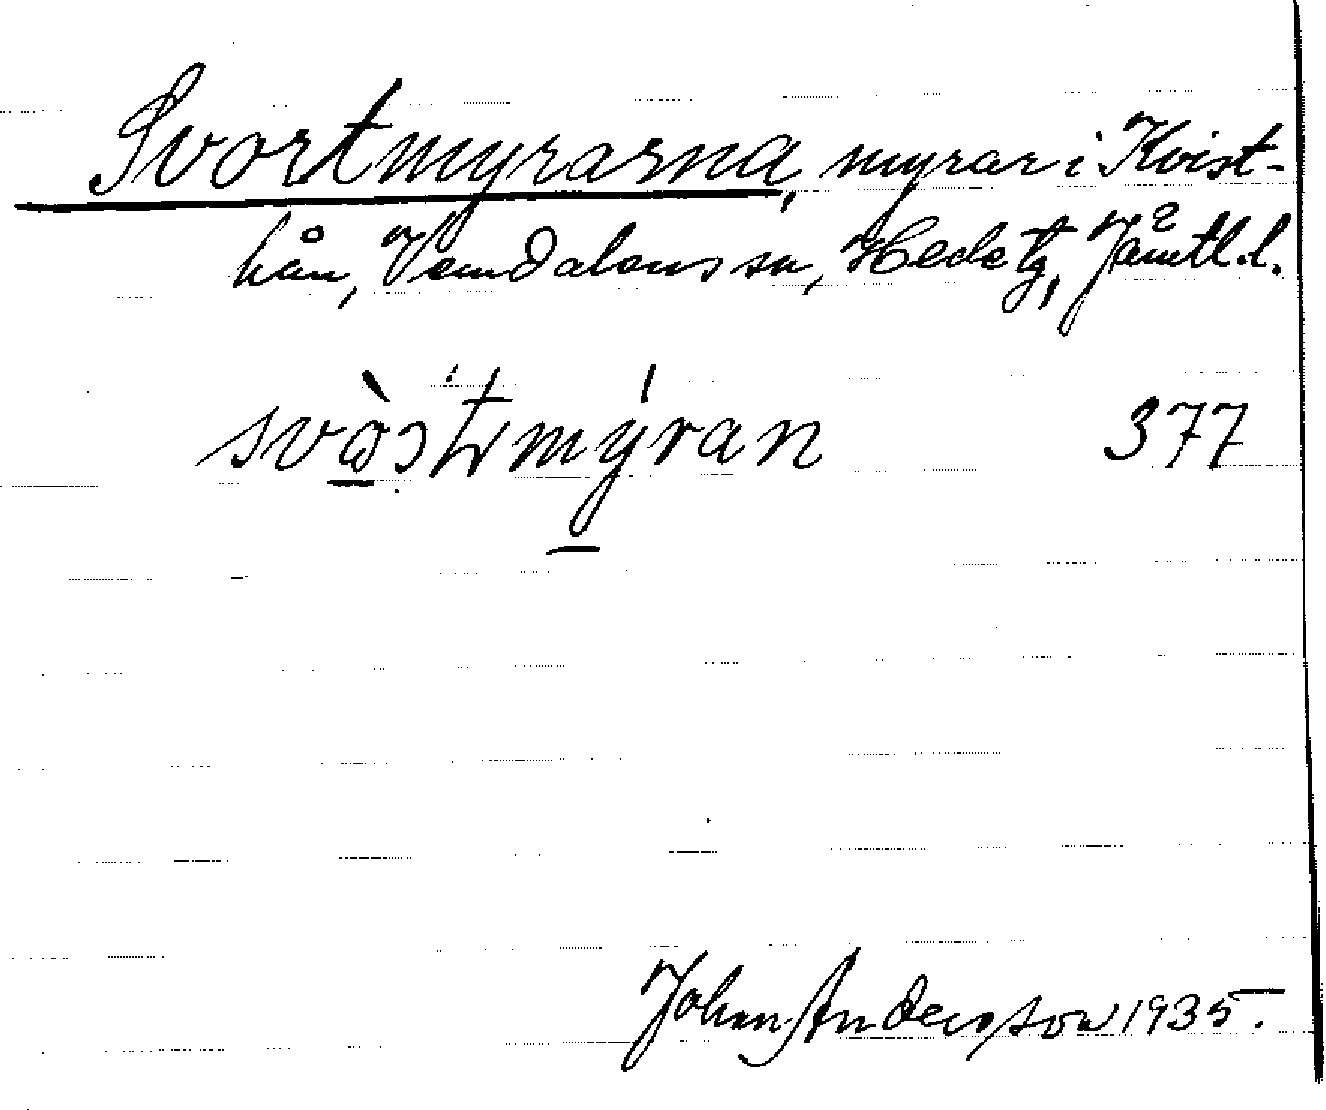 Svortmyrarna, myrar i Kvist-
hån, Vemdalens sn, Hede tg, Jämtl. l.
377
John Andersson 1935.